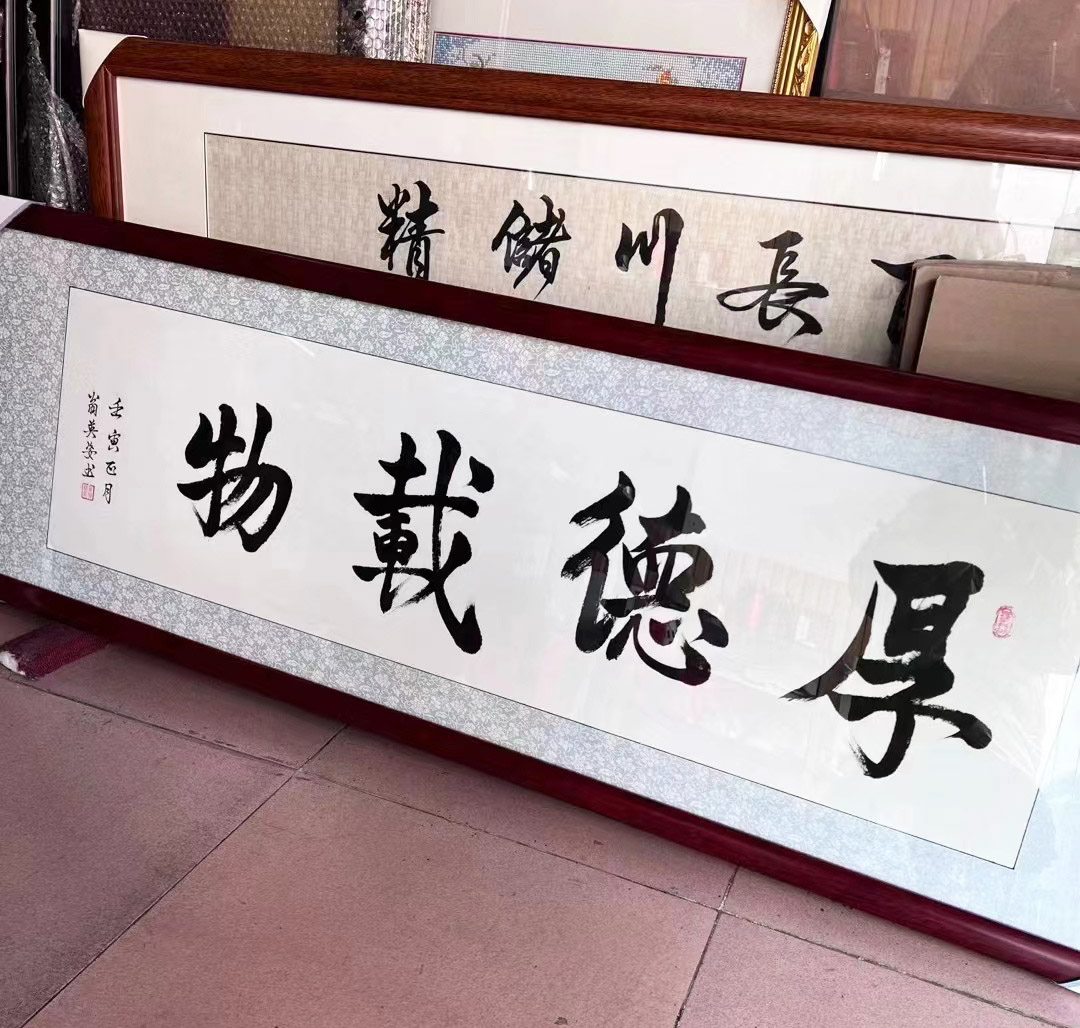 厚德載物
壬寅正月
翁英姿书
長川儲精